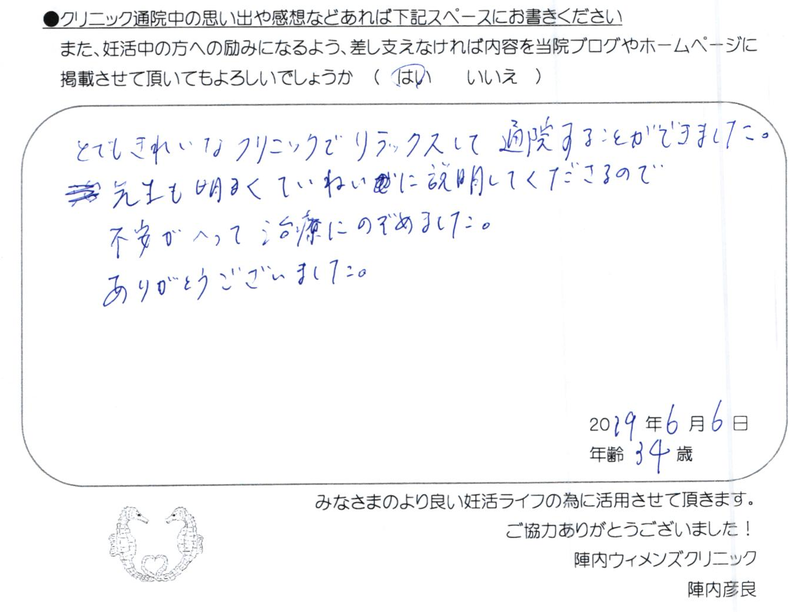 ●クリニック通院中の思い出や感想などあれば下記スペースにお書きください
また、妊活中の方への励みになるよう、差し支えなければ内容を当院ブログやホームページに
掲載させて頂いてもよろしいでしょうか （ はい いいえ ）
とてもきれいなクリニックでリラックスして通院することができました。
先生も明るくていねいに説明してくださるので
不安がへって治療にのぞめました。
ありがとうございました。
2019年6月6日
年齢34歳
みなさまのより良い妊活ライフの為に活用させて頂きます。
ご協力ありがとうございました！
陣内ウィメンズクリニック
陣内彦良